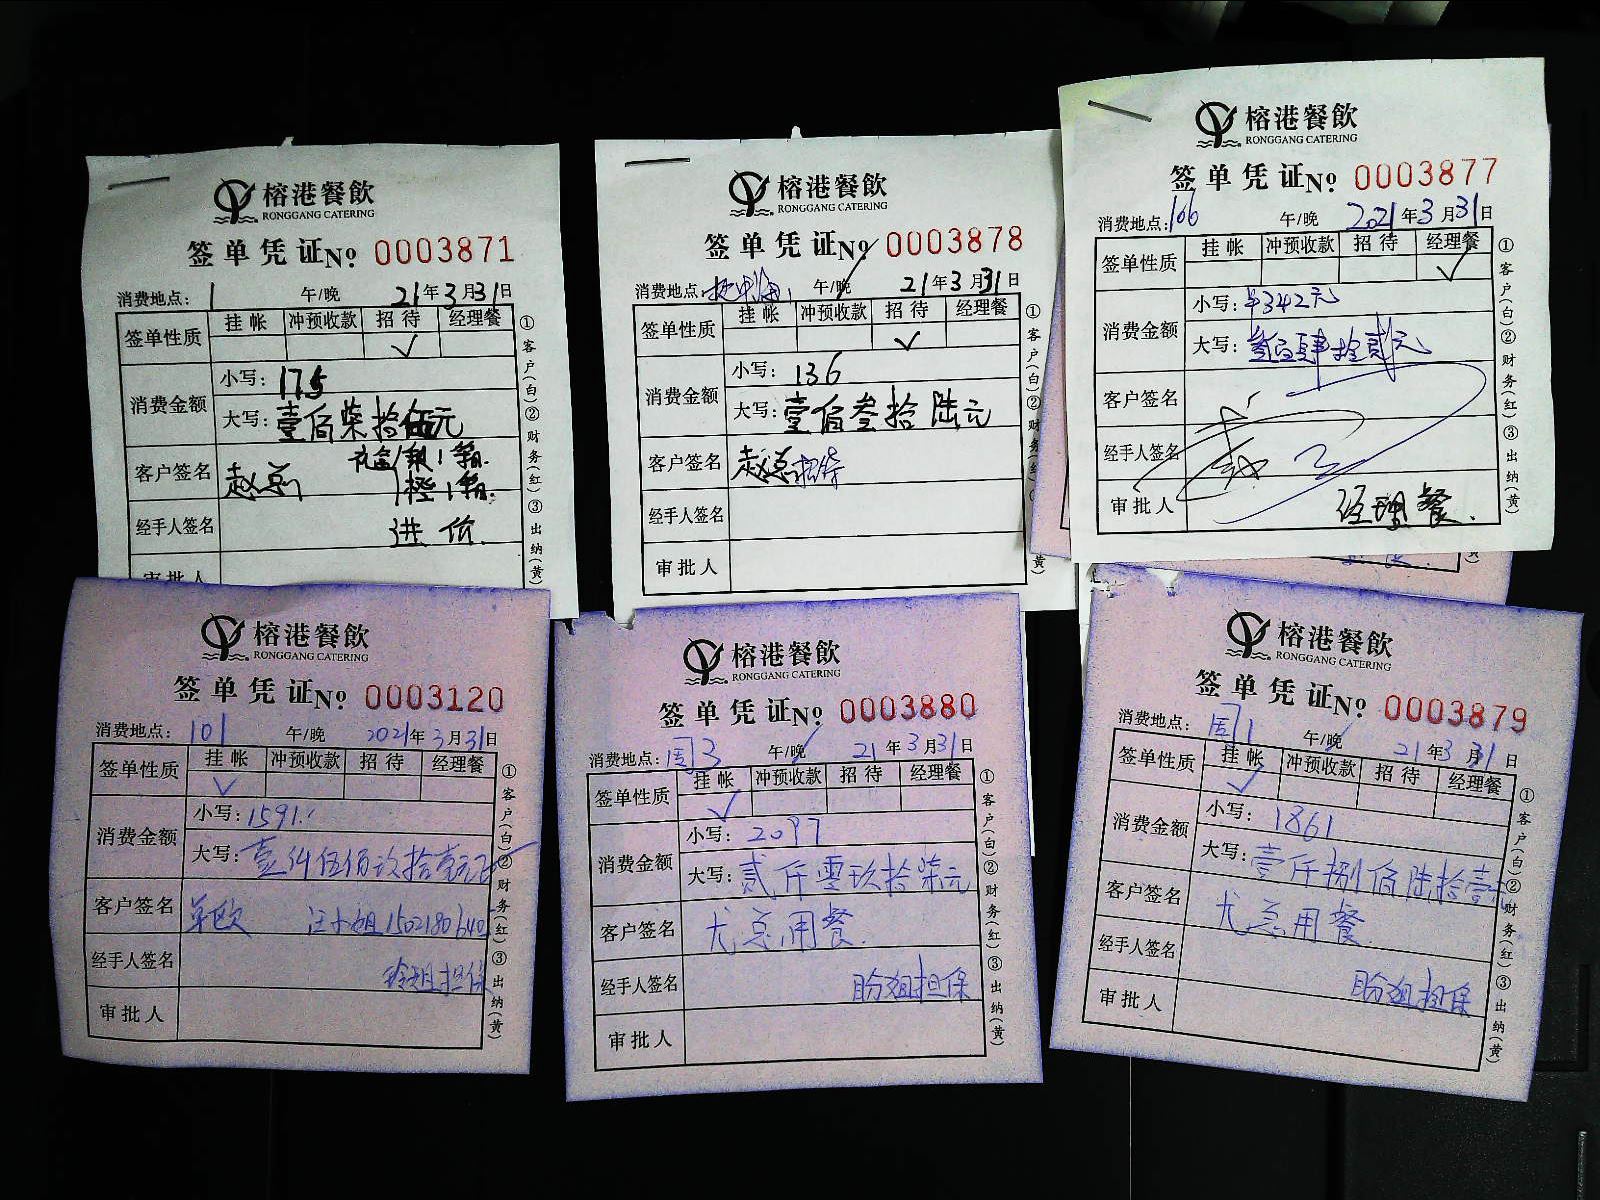 榕港餐飲
RONGGANG CATERING
签单凭证 No 0003871
消费地点: 1 午/晚 21年3月31日
签单性质 挂帐 冲预收款 招待 经理餐
✓
消费金额 小写: 175
大写: 壹佰柒拾伍元
客户签名 赵总
橙1箱.
经手人签名 进价.
审批人
①客户(白)②财务(红)③出纳(黄)
榕港餐飲
RONGGANG CATERING
签单凭证 No 0003878
消费地点: 午/晚 21年3月31日
签单性质 挂帐 冲预收款 招待 经理餐
✓
消费金额 小写: 136
大写: 壹佰叁拾陆元
客户签名 赵总招待
经手人签名
审批人
①客户(白)②财务(红)
(黄)
榕港餐飲
RONGGANG CATERING
签单凭证 No 0003877
消费地点: 106 午/晚 2021年3月31日
签单性质 挂帐 冲预收款 招待 经理餐
✓
消费金额 小写: ¥342元
大写: 叁佰肆拾贰元
客户签名
经手人签名
审批人 经理餐.
①客户(白)②财务(红)③出纳(黄)
榕港餐飲
RONGGANG CATERING
签单凭证 No 0003120
消费地点: 101 午/晚 2021年3月31日
签单性质 挂帐 冲预收款 招待 经理餐
✓
消费金额 小写: 1591.
大写: 壹仟伍佰玖拾壹元正
客户签名 汪小姐 1502180640
经手人签名 玲姐担保
审批人
①客户(白)②财务(红)③出纳(黄)
榕港餐飲
RONGGANG CATERING
签单凭证 No 0003880
消费地点: 周3 午/晚 21年3月31日
签单性质 挂帐 冲预收款 招待 经理餐
✓
消费金额 小写: 2097
大写: 贰仟零玖拾柒元
客户签名 尤总用餐.
经手人签名 盼姐担保
审批人
①客户(白)②财务(红)③出纳(黄)
榕港餐飲
RONGGANG CATERING
签单凭证 No 0003879
消费地点: 周1 午/晚 21年3月31日
签单性质 挂帐 冲预收款 招待 经理餐
✓
消费金额 小写: 1861
大写: 壹仟捌佰陆拾壹元
客户签名 尤总用餐
经手人签名 盼姐担保
审批人
①客户(白)②财务(红)③出纳(黄)